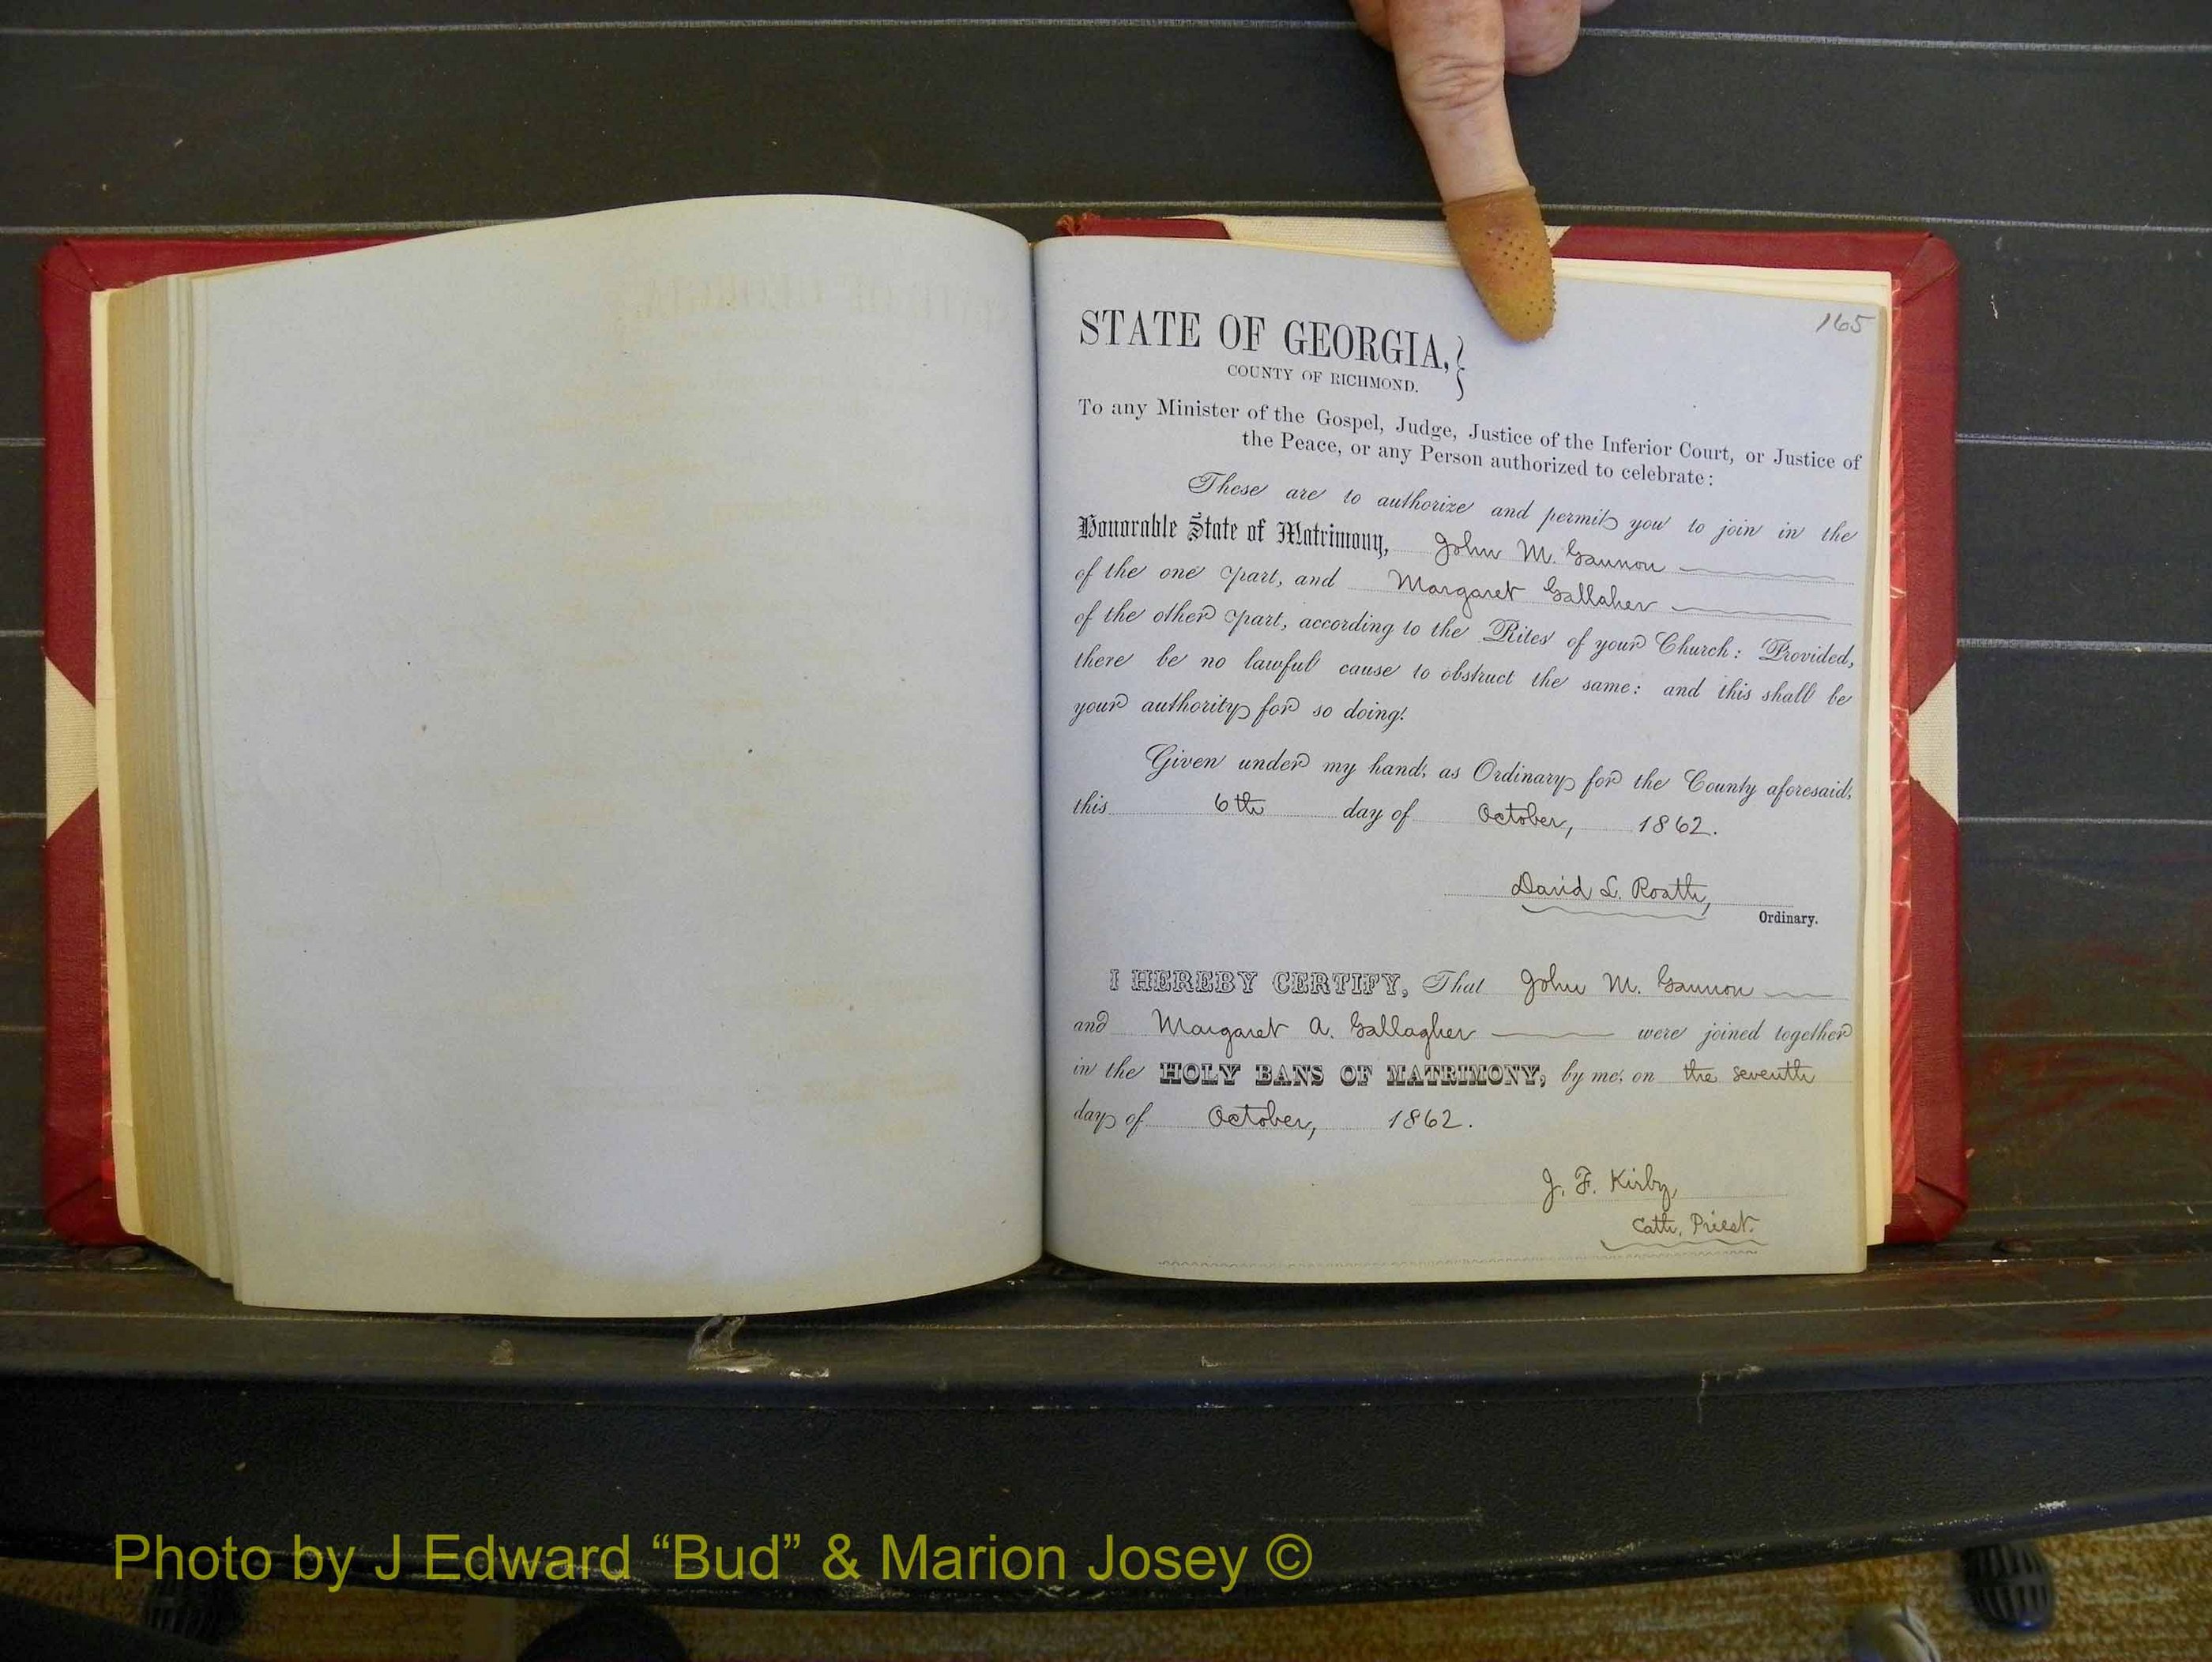 165
STATE OF GEORGIA,}
COUNTY OF RICHMOND.
To any Minister of the Gospel, Judge, Justice of the Inferior Court, or Justice of
the Peace, or any Person authorized to celebrate:
These are to authorize and permit you to join in the
Honorable State of Matrimony, John M. Gannon
of the one part, and Margaret Gallaher
of the other part, according to the Rites of your Church: Provided,
there be no lawful cause to obstruct the same: and this shall be
your authority for so doing.
Given under my hand, as Ordinary for the County aforesaid,
this 6th day of October, 1862.
David L. Roath,
Ordinary.
I HEREBY CERTIFY, That John M. Gannon
and Margaret A. Gallagher were joined together
in the HOLY BANS OF MATRIMONY, by me, on the seventh
day of October, 1862.
J. F. Kirby,
Cath. Priest.
Photo by J Edward “Bud” & Marion Josey ©